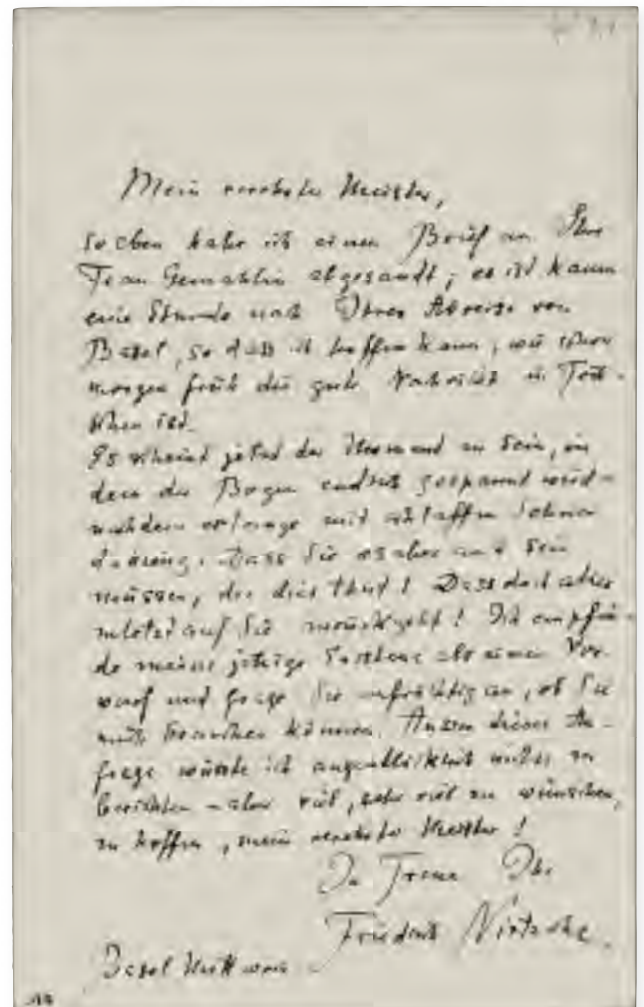 Mein verehrter Meister,
so eben habe ich einen Brief an Ihre
Frau Gemahlin abgesandt; es ist kaum
eine Stunde nach Ihrer Abreise von
Basel, so dass ich hoffen kann, wie schon
morgen früh die gute Nachricht in Trib-
schen ist.
Es scheint jetzt der Moment zu sein, in
dem der Bogen endlich gespannt wird –
nachdem er lange mit schlaffer Sehne
dahing. Dass Sie es aber auch sein
müssen, der dies thut! Dass doch alles
zuletzt auf Sie zurückgeht! Ich empfin-
de meine jetzige Existenz als einen Vor-
wurf und frage Sie aufrichtig an, ob Sie
mich brauchen können. Ausser dieser An-
frage wüsste ich augenblicklich nichts zu
berichten – aber viel, sehr viel zu wünschen,
zu hoffen, mein verehrter Meister!
In Treue Ihr
Friedrich Nietzsche.
Basel Mittwoch